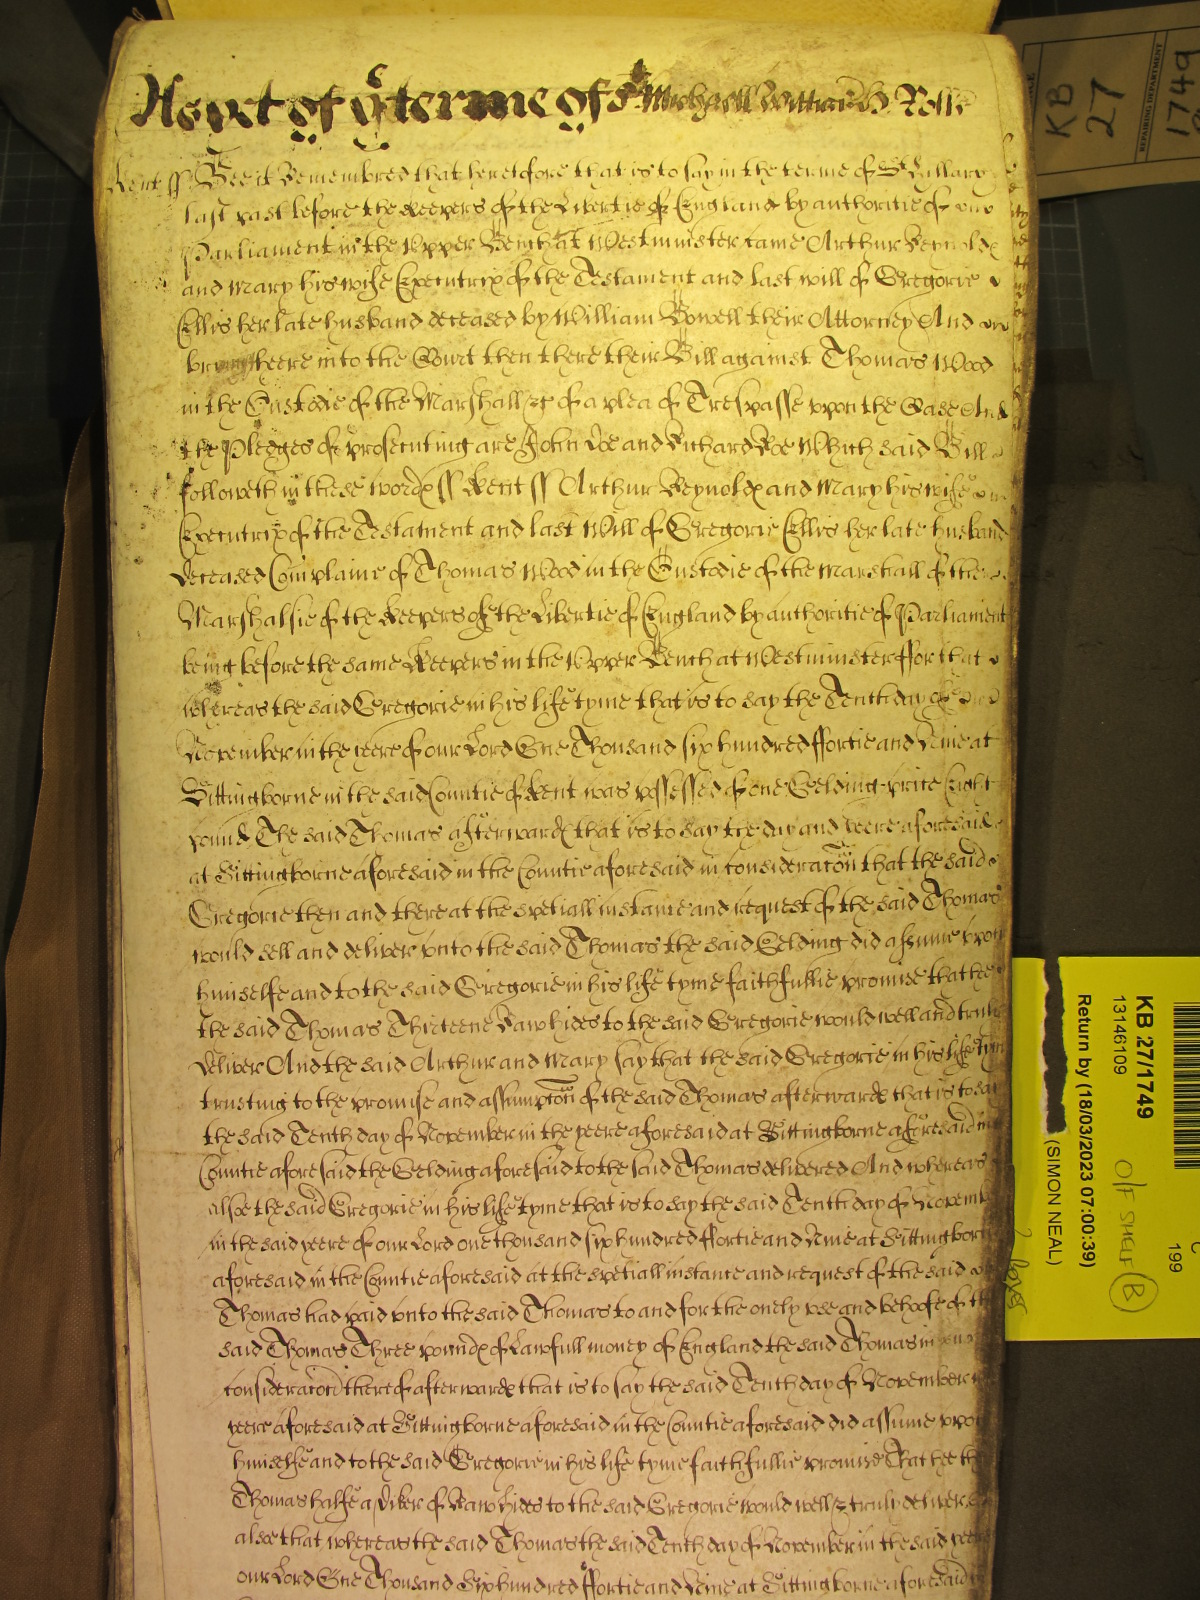 Yet of ye terme of St Michaell Wittnes H Rolle
Kent ss Bee it Remembred that heretofore that is to say in the terme of St Hillary
last past before the Keepers of the Libertie of England by authoritie of
Parliament in the Upper Bench at Westminster came Arthur Reynolds
and Mary his wife Executrix of the Testament and last will of Gregorie
Ellis her late husband deceased by William Rowell their Attorney And
bring heere into the Court then there their Bill against Thomas Wood
in the Custodie of the Marshall &c of a plea of Trespasse vpon the Case And
the Pledges of prosecuting are John Doe and Richard Roe Which said Bill
followeth in these words ss Kent ss Arthur Reynolds and Mary his wife
Executrix of the Testament and last Will of Gregorie Ellis her late husband
deceased Complaine of Thomas Wood in the Custodie of the Marshall of the
Marshalsie of the Keepers of the Libertie of England by authoritie of Parliament
being before the same Keepers in the Vpper Bench at Westminster ffor that
whereas the said Gregorie in his life tyme that is to say the Tenth day of
November in the yeere of our Lord One Thousand six hundred ffortie and Nine at
Sittingborne in the said Countie of Kent was possessed of one Gelding price Eight
pounds The said Thomas afterwards that is to say the day and yeere aforesaid
at Sittingborne aforesaid in the Countie aforesaid in consideracon that the said
Gregorie then and there at the speciall instance and request of the said Thomas
would sell and deliver vnto the said Thomas the said Gelding did assume vpon
himselfe and to the said Gregorie in his life tyme faithfullie promise that hee
the said Thomas Thirteene Raw hides to the said Gregorie would well and truly
deliver And the said Arthur and Mary say that the said Gregorie in his life tyme
trusting to the promise and assumpcon of the said Thomas afterwards that is to say
the said Tenth day of November in the yeere aforesaid at Sittingborne aforesaid in
Countie aforesaid the Gelding aforesaid to the said Thomas delivered And whereas
alsoe the said Gregorie in his life tyme that is to say the said Tenth day of Novemb
in the said yeere of our Lord one thousand six hundred ffortie and Nine at Sittingborn
aforesaid in the Countie aforesaid at the speciall instance and request of the said
Thomas had paid vnto the said Thomas to and for the onely vse and behoofe of th
said Thomas Three pounds of Lawfull money of England the said Thomas in
consideracon thereof afterwards that is to say the said Tenth day of November
yeere aforesaid at Sittingborne aforesaid in the Countie aforesaid did assume vpon
himselfe and to the said Gregorie in his life tyme faithfullie promise That hee th
Thomas halfe a Diker of Raw hides to the said Gregorie would well & truly deliver
alsoe that whereas the said Thomas the said Tenth day of November in the said yeere
our Lord One Thousand Six hundred ffortie and Nine at Sittingborne aforesaid
KB
27
1749
REPAIRING DEPARTMENT
KB 27/1749
13146109
Return by (18/03/2023 07:00:39)
(SIMON NEAL)
O/F SHELF B
199